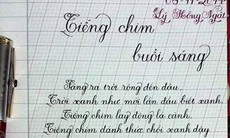 Lý Hồng Ngát
Tiếng chim
buổi sáng
Sáng ra trời rộng đến đâu
Trời xanh như mới lần đầu biết xanh
Tiếng chim lay động lá cành
Tiếng chim đánh thức chồi xanh dậy